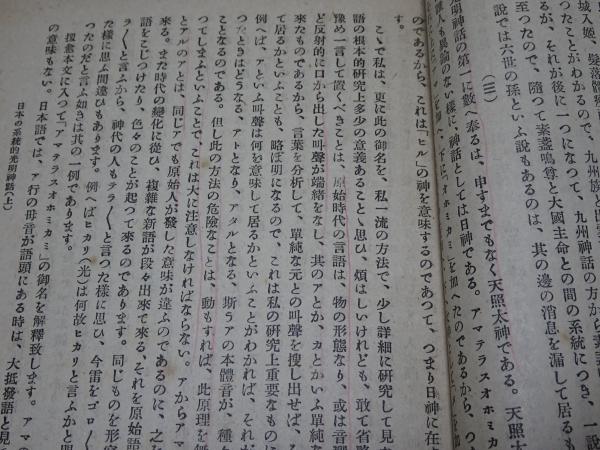 城入姫、髪落體痩
たことがわかるので、九州族と出
るが、それが後に一つになつて、九州神話の方から
至つたので、隨つて素盞嗚尊と大國主命との間の系統につき、一說
說では六世の孫といふ說もあるのは、其の邊の消息を漏して居るも
(三)
光明神話の第一に數へ奉るは、申すまでもなく天照太神である。天照
何人も異論のない樣に、神話としては日神である。アマテラスオホミカミ
を加へ、下に「オホミカミ」を加へたのであるから、つ
のであるから、これは「ヒル」の神を意味するのであつて、つまり日神に在
す。
こゝで私は、更に此の御名を、私一流の方法で、少し詳細に研究して見
語の根本的研究上多少の意義あることゝ思ひ、煩はしいけれども、敢て省略
豫め一言して置くべきことは、原始時代の言語は、物の形態なり、或は音
ど反射的に口から出した叫聲が端緒をなし、其のアとか、カとかいふ單純な
來たものであるから、言葉を分析して、單純な元との叫聲を搜し出せば、
て居るかといふことも、略ぼ明になるので、これは私の研究上重要なものに
例へば、アといふ叫聲は何を意味して居るかといふことがわかれば、それが
つたときはどうなる、アトとなり、アタルとなる、斯うアの本體音が、種々
ことなるのである。但し此の方法の危險なことは、動もすれば、此原理を無
つてしまふといふことで、これは大に注意しなければならない。アからアマ
とアルのアとは、同じアでも原始人が發した意味が違ふのであるのに、之を
來る。また時代の變化に從ひ、複雜な新語が段々出來て來る、それを原始語
語をこじつけたり、色々のことが起つて來るのであります。同じものを形容
ラ〳〵と言ふから、神代の人もテラ〳〵と言つた樣に思ひ、今雷をゴロ〳〵
樣に思ふ間違ひもあります。例へばヒカリ(光)は何故ヒカリと言ふかと
つたのだと言ふ如きは其の一例であります。
扨愈本文に入つて「アマテラスオホミカミ」の御名を解釋致します。アマ
の意味もない。日本語では、ア行の母音が語頭にある時は、大抵發語と見
日本の系統的光明神話(上)